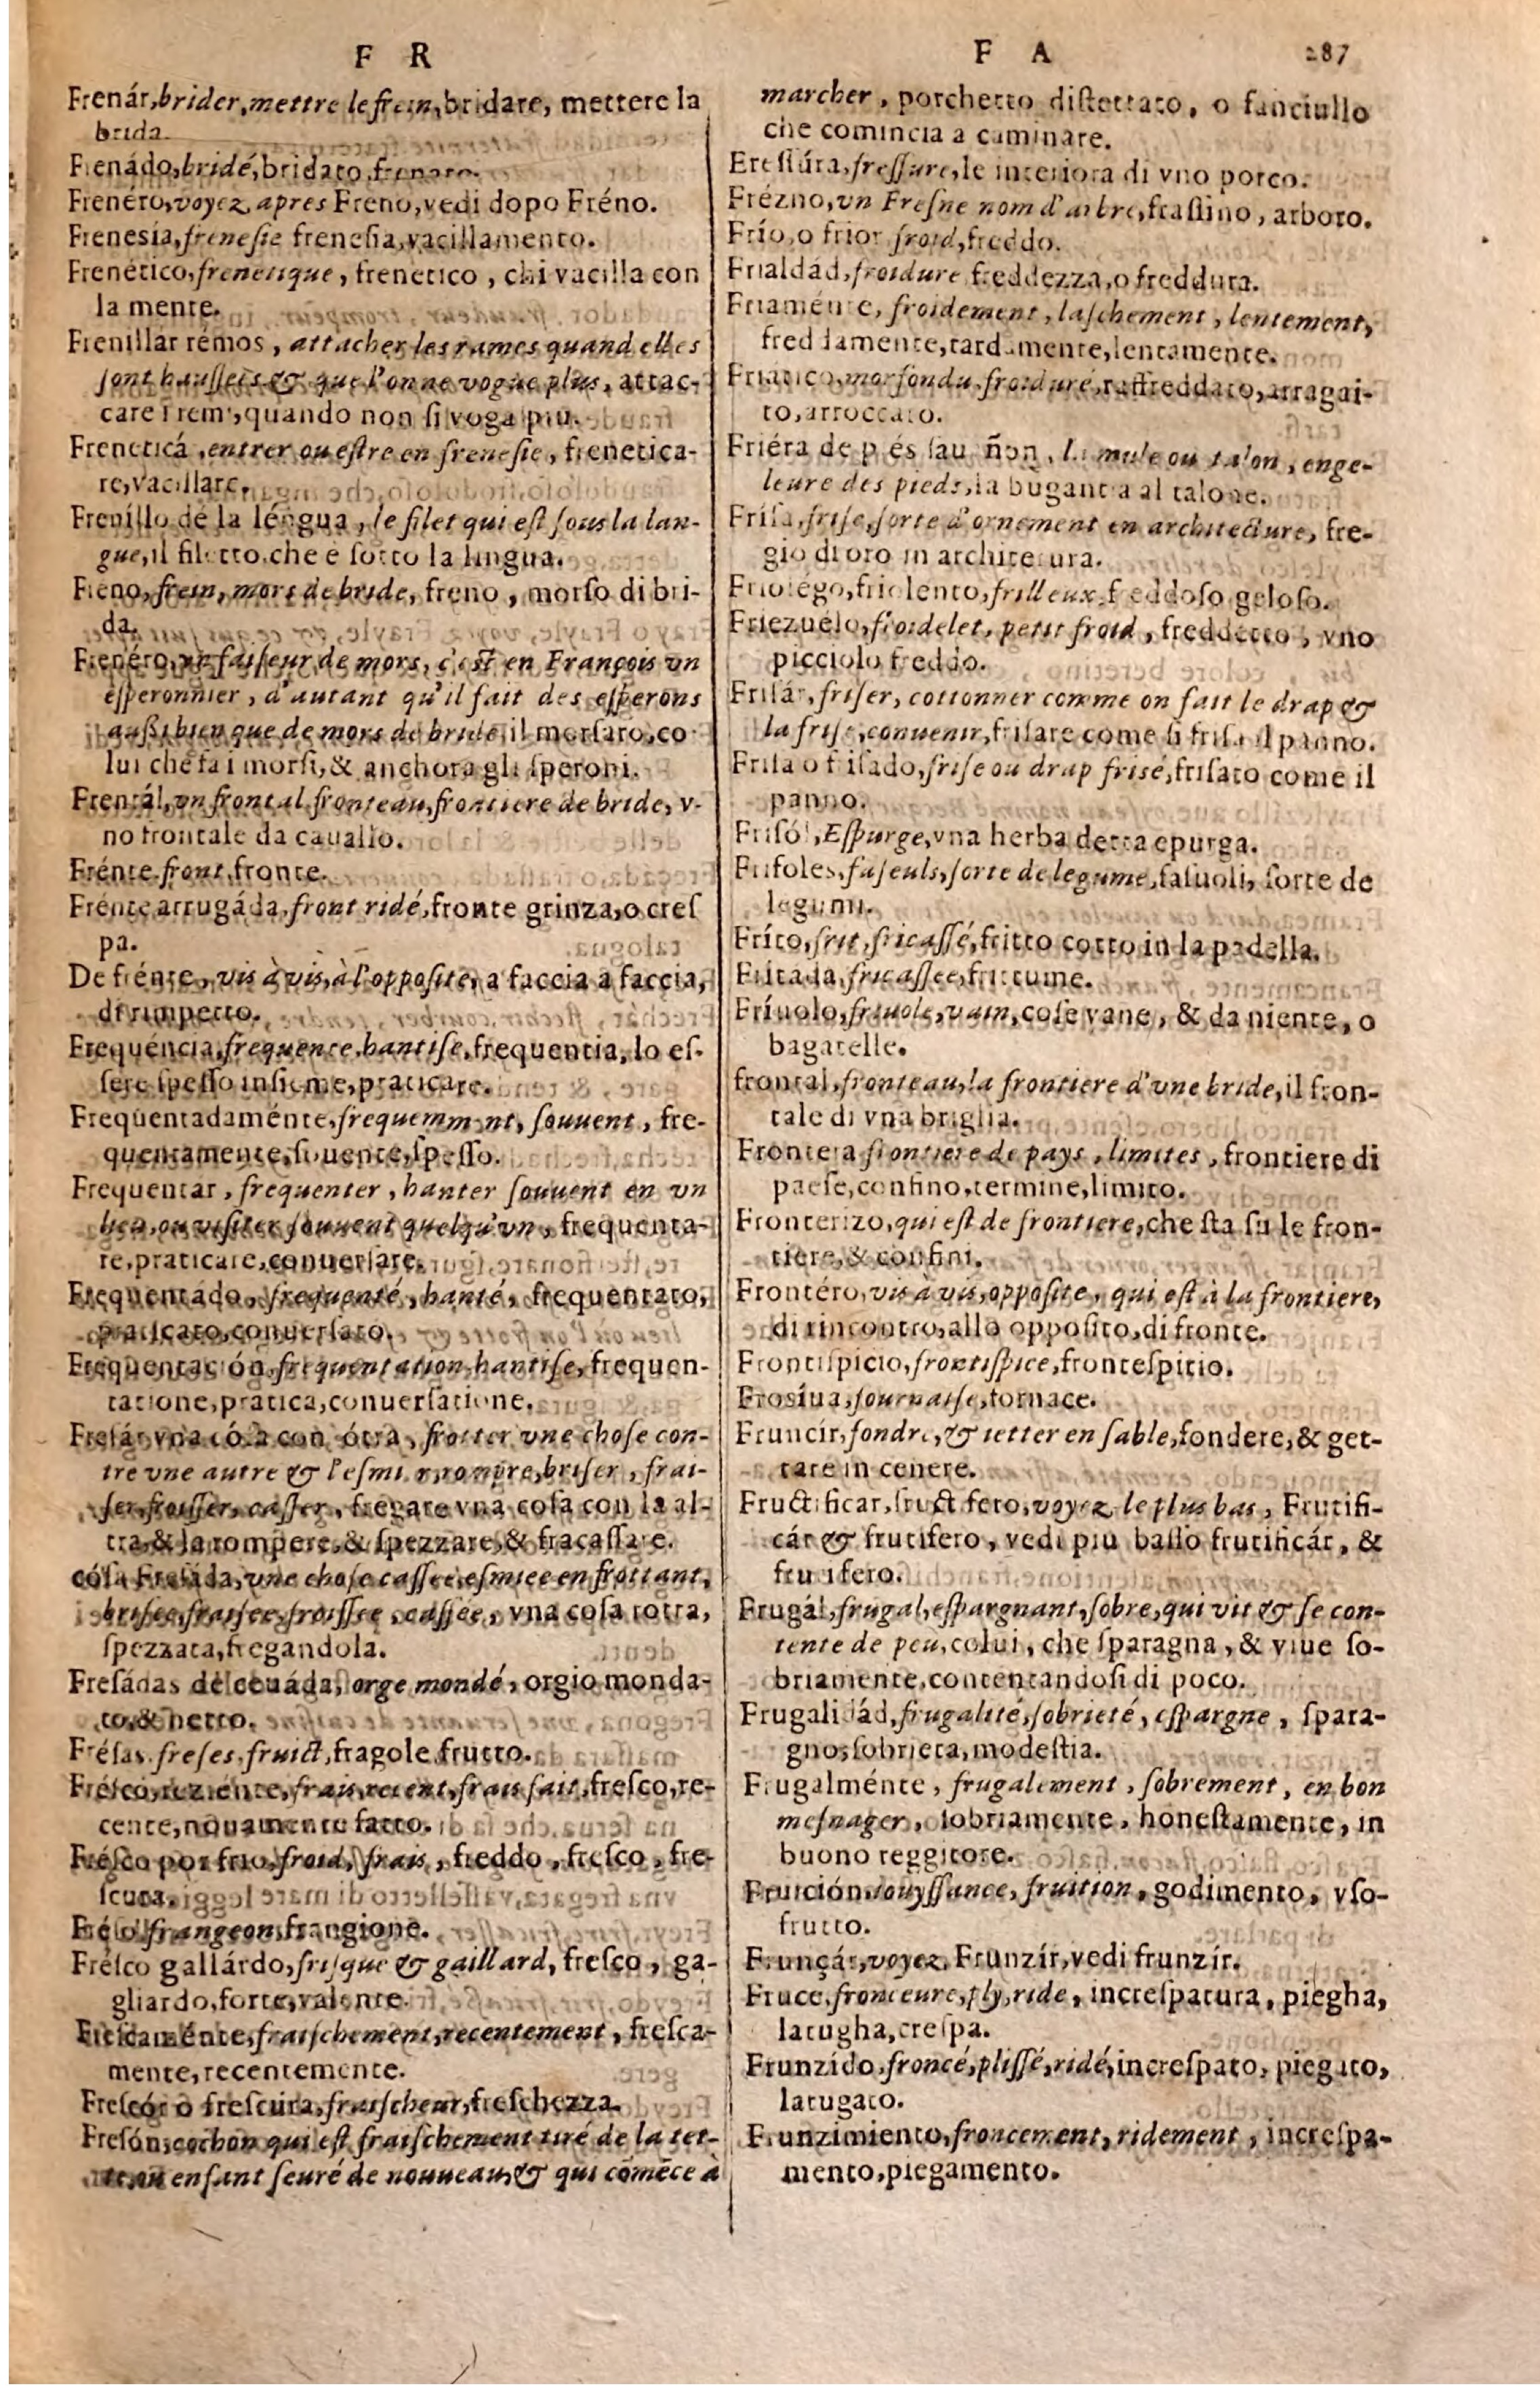 F R
Frenár, brider, mettre le frein, bridare, mettere la
brida.
Frenádo, bridé, bridato, frenato.
Frenéro, voyez apres Freno, vedi dopo Fréno.
Frenesia, frenesie frenesia, vacillamento.
Frenético, frenetique, frenetico, chi vacilla con
la mente.
Frenillar rémos, attacher les rames quand elles
sont haussees & que l'on ne vogue plus, attac-
care i remi, quando non si voga piu.
Freneticá, entrer ou estre en frenesie, frenetica-
re, vacillare.
Frenillo de la léngua, le filet qui est sous la lan-
gue, il filetto che e sotto la lingua.
Freno, frein, mors de bride, freno, morso di bri-
da.
Frenéro, un faiseur de mors, c'est en François vn
esperonnier, d'autant qu'il fait des esperons
aussi bien que de mors de bride, il morsaro, co
lui che fa i morsi, & anchora gli speroni.
Frentál, vn frontal, fronteau, frontiere de bride, v-
no frontale da cauallo.
Frénte front, fronte.
Frénte arrugáda, front ridé, fronte grinza, o cres
pa.
De frénte, vis à vis, à l'opposite, a faccia a faccia,
di rimpetto.
Frequéncia, frequence, hantise, frequentia, lo es-
sere spesso insieme, praticare.
Frequentadaménte, frequemment, souuent, fre-
quentamente, souente, spesso.
Frequentar, frequenter, hanter souuent en vn
lieu, ou visiter souuent quelqu'vn, frequenta-
re, praticare, conuersare.
Frequentádo, frequenté, hanté, frequentato,
praticato, conuersato.
Frequentación, frequentation, hantise, frequen-
tatione, pratica, conuersatione.
Fresár vna cósa con ótra, frotter vne chose con-
tre vne autre & l'esmier, rompre, briser, frai-
ser, froisser, casser, fregare vna cosa con la al-
tra, & la rompere, & spezzare, & fracassare.
cósa Fresáda, vne chose cassee, esmiee en frottant,
brisee, fraisee, froissee, cassée, vna cosa rotta,
spezzata, fregandola.
Fresádas de ceuáda, orge mondé, orgio monda-
to, & netto.
Frésas, freses, fruict, fragole frutto.
Frésco, reziente, frais, recent, frais fait, fresco, re-
cente, nouamente fatto.
Frésco por frio, froid, frais, freddo, fresco, fre-
scura.
frangeon, frangione.
Frésco gallárdo, frisque & gaillard, fresco, ga-
gliardo, forte, valente.
Frescaménte, fraischement, recentement, fresca-
mente, recentemente.
Frescór o frescura, fraischeur, freschezza.
Fresón, cochon qui est fraischement tiré de la tet-
te, ou enfant seuré de nouueau, & qui cõmẽce à
F A 287
marcher, porchetto distettato, o fanciullo
che comincia a caminare.
Fressúra, fressure, le interiora di vno porco.
Frézno, vn Fresne nom d'arbre, frassino, arboro.
Frío, o frior froid, freddo.
Frialdád, froidure freddezza, o freddura.
Friaménte, froidement, laschement, lentement,
freddamente, tardamente, lentamente.
Friatico, morfondu, froiduré, raffreddato, arragai-
to, arroccato.
Friéra de piés sauañon, la mule ou talon, enge-
leure des pieds, la buganca al talone.
Frisa, frise, sorte d'ornement en architecture, fre-
gio di oro in architetura.
Friolégo, friolento, frilleux, freddoso geloso.
Friezuélo, froidelet, petit froid, freddetto, vno
picciolo freddo.
Frisár, friser, cottonner comme on fait le drap &
la frise, conuenir, frisare come si frisa il panno.
Frisa o frisado, frise ou drap frisé, frisato come il
panno.
Frisól, Espurge, vna herba detta epurga.
Frisoles, faseuls, sorte de legume, fasuoli, sorte de
legumi.
Fríto, frit, fricassé, fritto cotto in la padella.
Fritada, fricassee, frittume.
Fríuolo, friuole, vain, cose vane, & da niente, o
bagatelle.
frontal, fronteau, la frontiere d'vne bride, il fron-
tale di vna briglia.
Frontera frontiere de pays, limites, frontiere di
paese, confino, termine, limito.
Fronterizo, qui est de frontiere, che sta su le fron-
tiere, & confini.
Frontéro, vis à vis, opposite, qui est à la frontiere,
di rincontro, allo opposito, di fronte.
Frontispicio, frontispice, frontespitio.
Frosíua, fournaise, fornace.
Fruncír, fondre, & ietter en sable, fondere, & get-
tare in cenere.
Fructificar, fructifero, voyez le plus bas, Frutifi-
cár & frutifero, vedi piu basso frutificár, &
frutifero.
Frugál, frugal, espargnant, sobre, qui vit & se con-
tente de peu, colui, che sparagna, & viue so-
briamente, contentandosi di poco.
Frugalidád, frugalité, sobrieté, espargne, spara-
gno, sobrieta, modestia.
Frugalménte, frugalement, sobrement, en bon
mesnager, sobriamente, honestamente, in
buono reggitore.
Fruición, iouyssance, fruition, godimento, vso-
frutto.
Frunçár, voyez, Frunzír, vedi frunzír.
Fruce, fronceure, ply, ride, increspatura, piegha,
latugha, crespa.
Frunzído, froncé, plissé, ridé, increspato, piegato,
latugato.
Frunzimiento, froncement, ridement, increspa-
mento, piegamento.